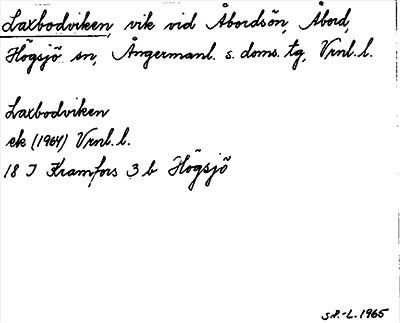 Laxbodviken, vik vid Åbordsön, Åbord,
Högsjö sn, Ångermanl. s. doms. tg, Vrnl. l.
Laxbodviken
ek (1964) Vrnl. l.
18 J Kramfors 3 b Högsjö
S.P.-L. 1965